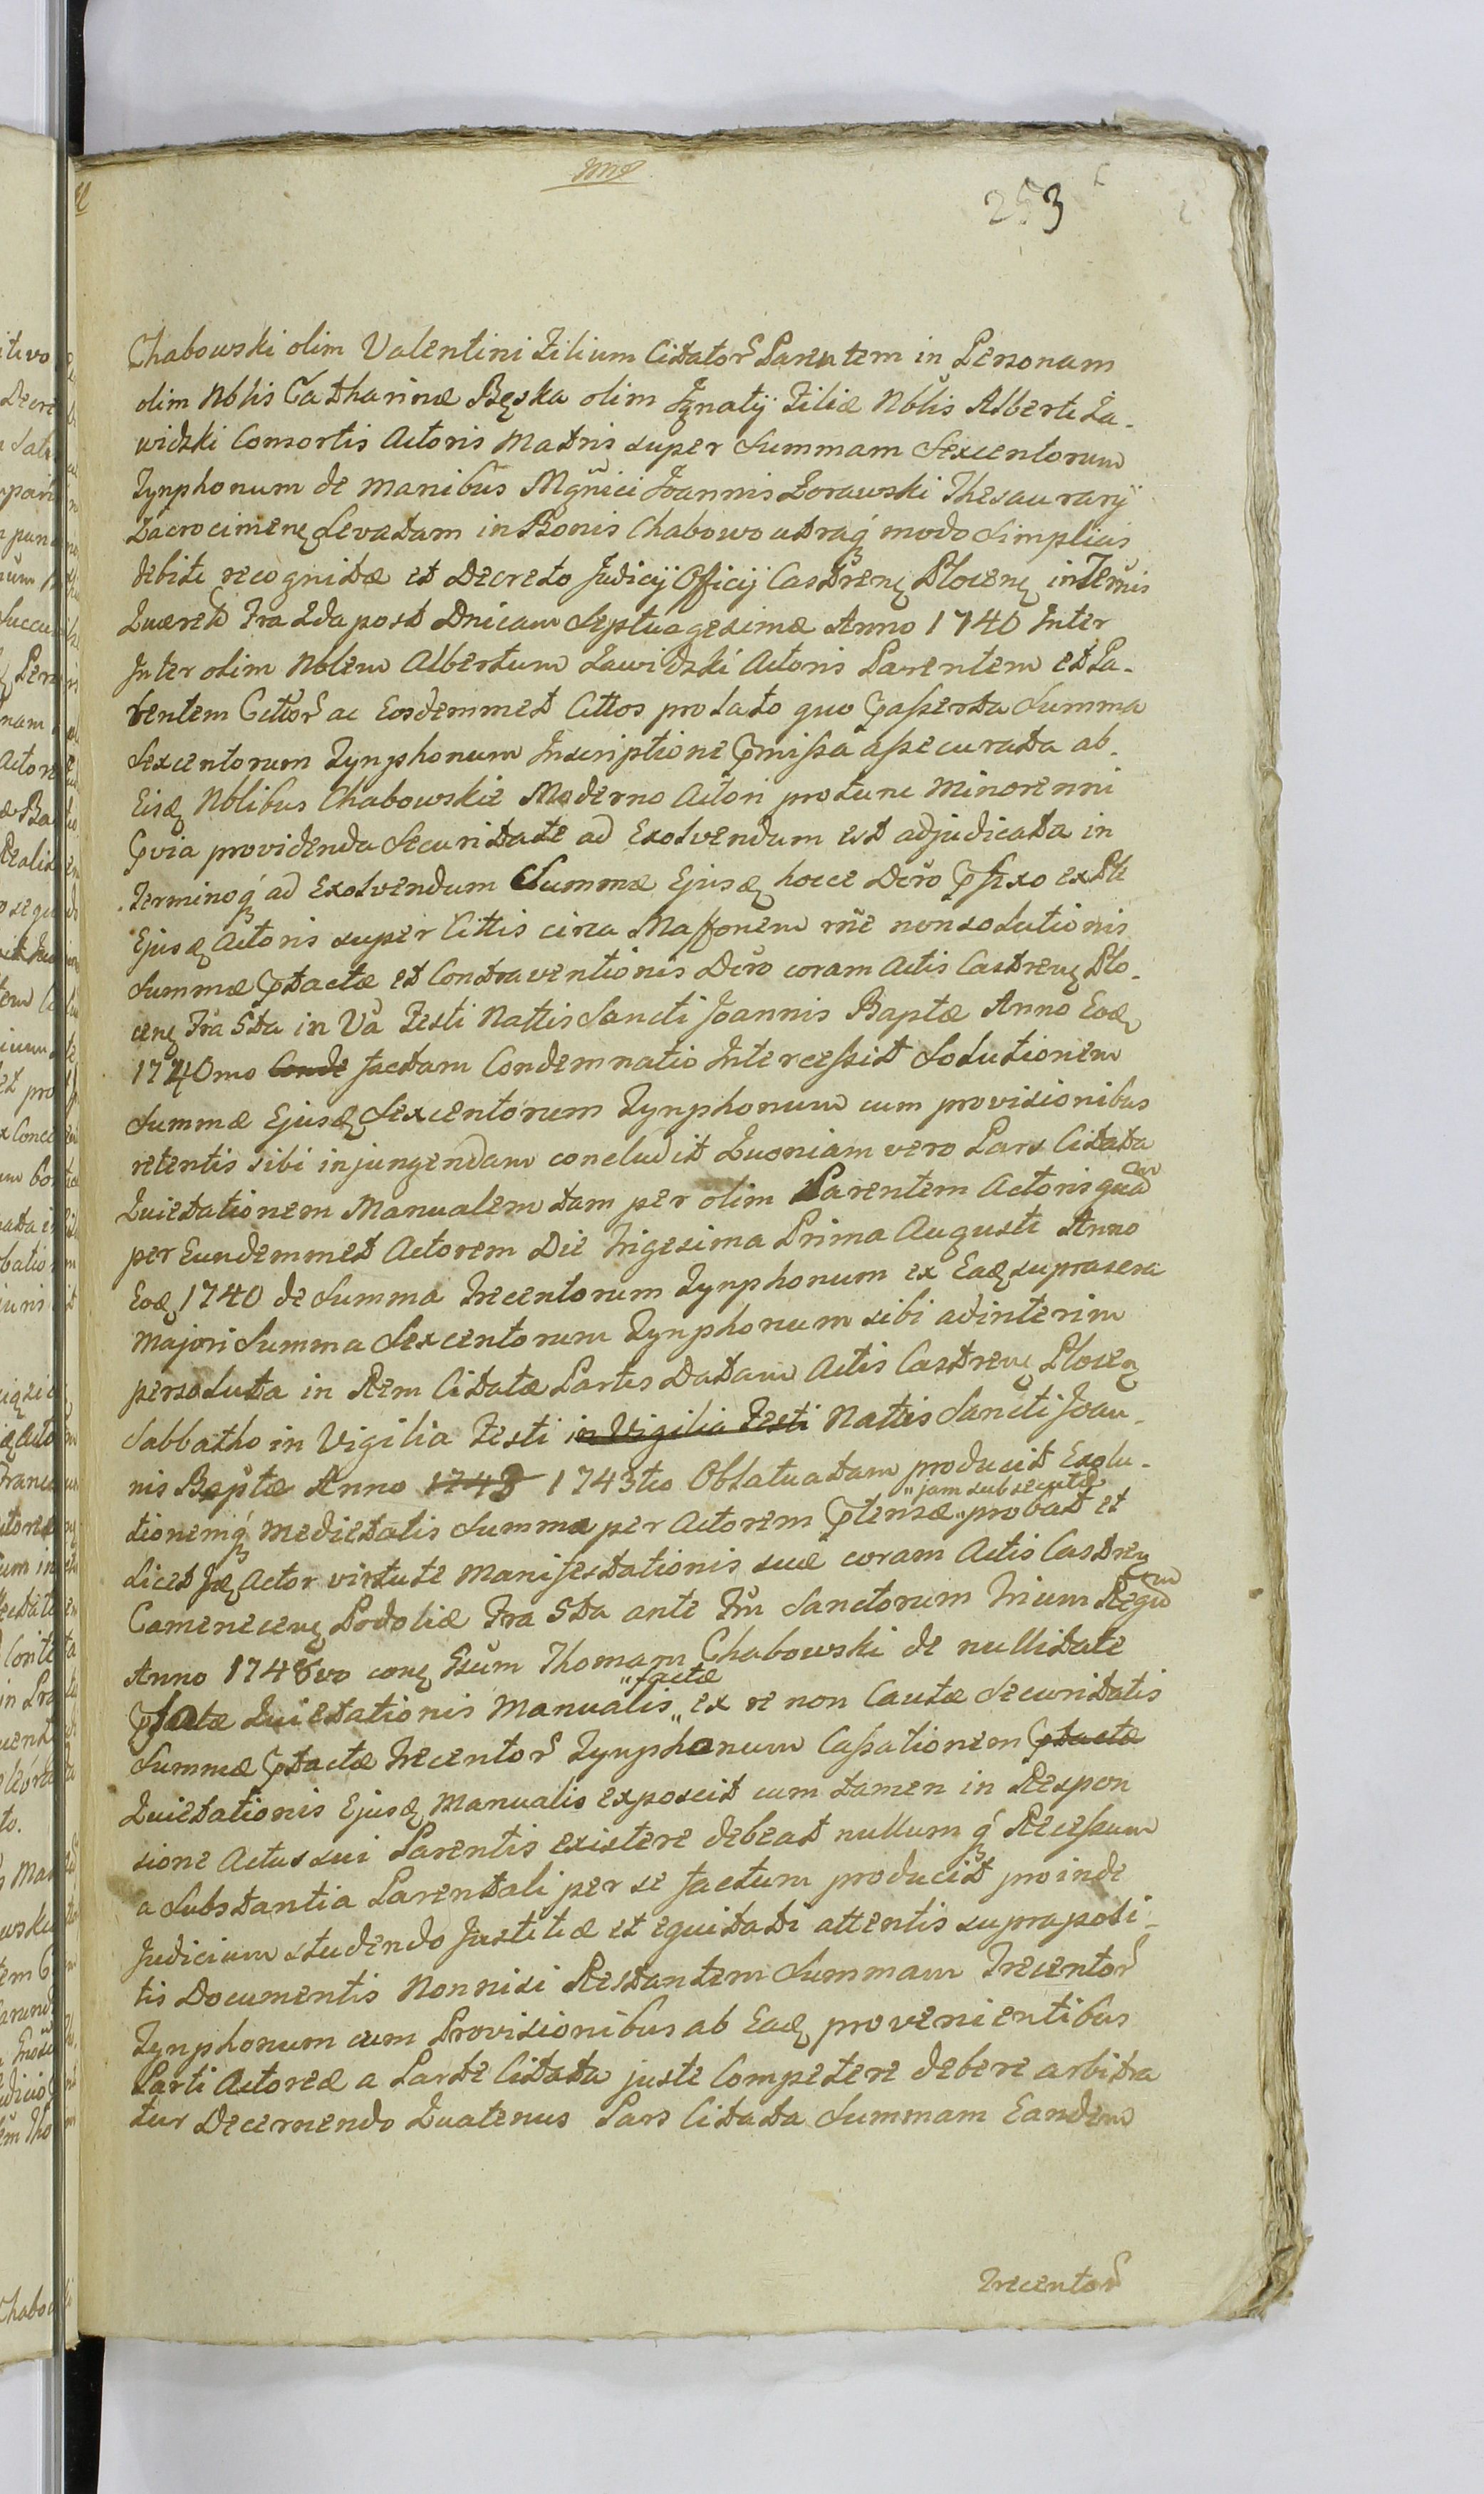 253
Chabowski olim Valentini Filium Citator Parentem in Personam
olim Nblis Catharinæ Bęska olim Ignatij Filiæ Nblis Alberti Za-
widzki Consortis Actoris Matris super Summam Sexcentorum
Tynphonum de manibus Mgnici Joannis Zorawski Thesaurarij
Zacrocimen Levatam in Bonis Chabowo utraq modo simplicis
debite recognitæ et Decreto Judicij Officij Castren Plocen in Termis
Quæret Fra 2da post Dnicam Septuagesimæ Anno 1740 Inter
Inter olim Noblem Albertum Zawidzki Actoris Parentem et Pa-
rentem Citror ac Eosdemmet Cittos prolato quo passerta Summa
Sexcentorum Tynphonum Inscriptione pmissa assecurata ab
Eisd Nblibus Chabowskie Moderno Actori protunc Minorenni
pvia providenda Securitate ad Exolvendum est adjudicata in
Terminoq ad Exolvendum Summæ Ejusd hocce Dcro pfixo ex Pte
Ejusd Actoris super Cittis circa Maffonem rne non solutionis
Summæ ptactæ et Contraventionis Dcro coram Actis Castren Plo-
cen Fra 5ta in Va Festi Nattis Sancti Joannis Baptæ Anno Eod
1740mo Conde factam Condemnatio Intercessit Solutionem
Summæ Ejusd Sexcentorum Tynphonum cum provisionibus
retentis sibi injungendam concludit Quoniam vero Pars Citata
Quietationem Manualem tam per olim Parentem Actoris quam
per Eundemmet Actorem Die Trigesima Prima Augusti Anno
Eod 1740 de Summa Trecentorum Tynphonum ex Ead suprascra
majori Summa Sexcentorum Tynphonum sibi adinterim
persoluta in Rem Citatæ Partis Datam Actis Castren Plocen
Sabbatho in Vigilia Festi in Vigilia Festi Nattis Sancti Joan-
nis Baptæ Anno 1743 1743tio Oblatuatam producit Exolu-
tionemq medietatis Summæ per Actorem ptensæ „jam subsecutam probat et
Licet Id Actor virtute Manifestationis suæ coram Actis Castren
Camenecen Podoliæ Fra 5ta ante Fm Sanctorum Trium Regum
Anno 1748vo con Gsum Thomam Chabowski de nullitate
pfatæ Quietationis Manualis „factæ„ ex re non Cautæ Securitatis
Summæ ptactæ Trecentor Tynphonum Cassationem ptactæ
Quietationis Ejusd Manualis exposcit cum tamen in Respon
sione Actus sui Parentis existere debeat nullumq Recessum
a Substantia Parentali per se factum producit proinde
Judicium studendo Justitiæ et equitati attentis supraposi-
tis Documentis Nonnisi Restantem Summam Trecentor
Tynphonum cum Provisionibus ab Ead provenientibus
Parti Actoreæ a Parte Citata juste Competere debere arbitra
tur Decernendo Quatenus Pars Citata Summam Eandem
Trecentor